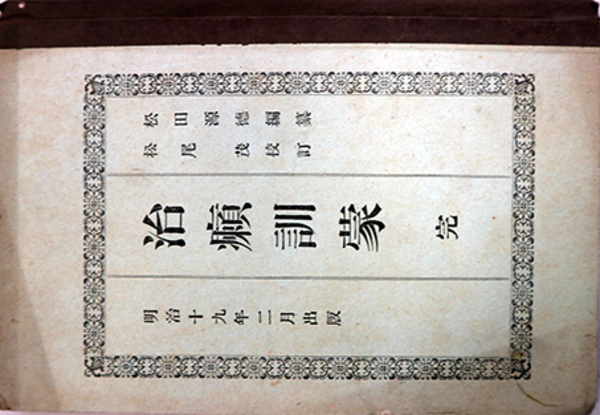 松田源徳編纂
松尾茂校訂
治癩訓蒙 完
明治十九年二月出版